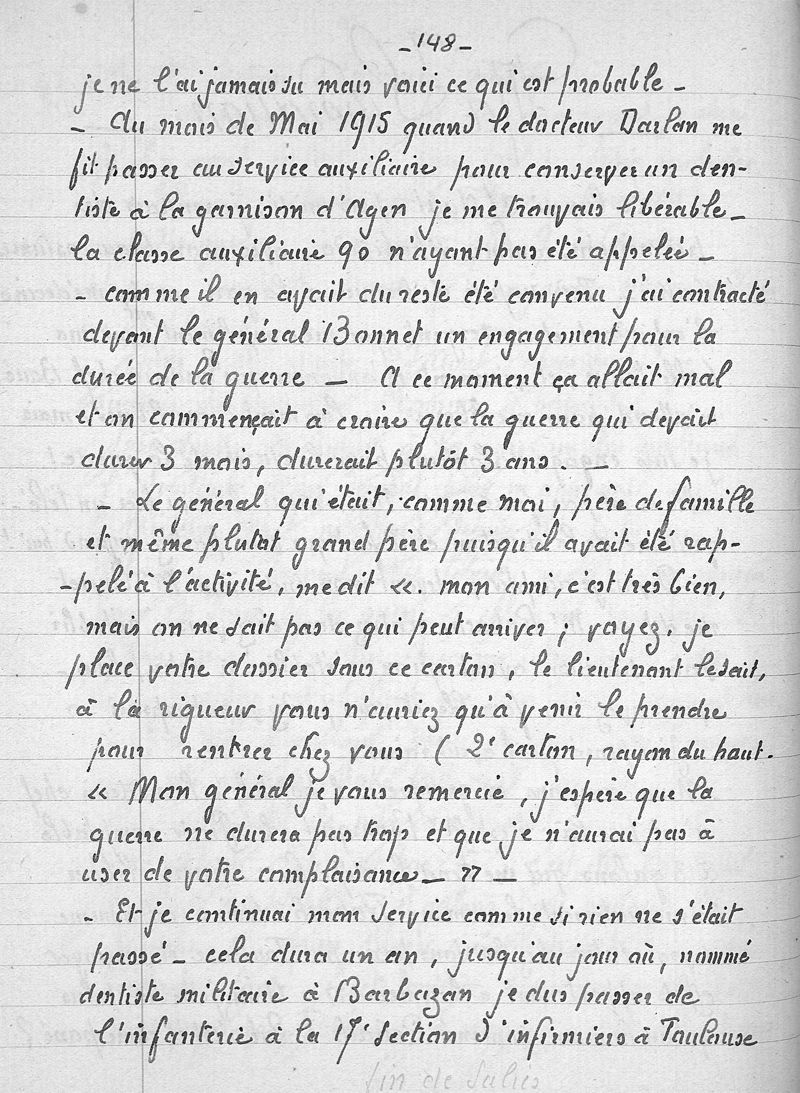 -148-
je ne l'ai jamais su mais voici ce qui est probable -
- Au mois de Mai 1915 quand le docteur Darlan me
fit passer au service auxiliaire pour conserver un den-
tiste à la garnison d'Agen je me trouvais libérable -
la classe auxiliaire 90 n'ayant pas été appelée -
- comme il en avait du reste été convenu j'ai contracté
devant le général Bonnet un engagement pour la
durée de la guerre - A ce moment ça allait mal
et on commençait à croire que la guerre qui devait
durer 3 mois, durerait plutôt 3 ans. -
- Le général qui était, comme moi, père de famille
et même plutot grand père puisqu'il avait été rap-
-pelé à l'activité, me dit «. mon ami, c'est très bien,
mais on ne sait pas ce qui peut arriver ; voyez, je
place votre dossier sous ce carton, le lieutenant le sait,
à la rigueur vous n'auriez qu'à venir le prendre
pour rentrer chez vous ( 2e carton, rayon du haut.
« Mon général je vous remercie, j'espère que la
guerre ne durera pas trop et que je n'aurai pas à
user de votre complaisance - » -
- Et je continuai mon service comme si rien ne s'était
passé - cela dura un an, jusqu'au jour où, nommé
dentiste militaire à Barbazan je dus passer de
l'infanterie à la 17e section d'infirmiers à Toulouse
fin de Salies